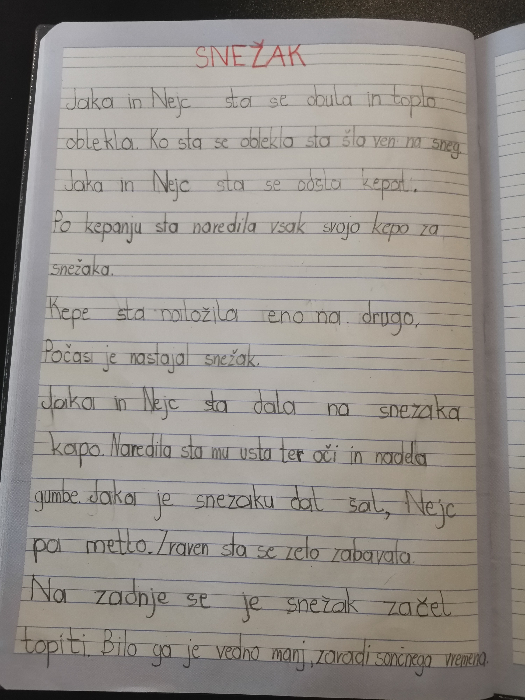 SNEŽAK
Jaka in Nejc sta se obula in toplo
oblekla. Ko sta se oblekla sta šla ven na sneg.
Jaka in Nejc sta se odšla kepat.
Po kepanju sta naredila vsak svojo kepo za
snežaka.
Kepe sta naložila eno na drugo.
Počasi je nastajal snežak.
Jaka in Nejc sta dala na snezaka
kapo. Naredila sta mu usta ter oči in nadela
gumbe. Jaka je snezaku dal šal, Nejc
pa metlo. Zraven sta se zelo zabavala.
Na zadnje se je snežak začel
topiti. Bilo ga je vedno manj, zaradi sončnega vremena.